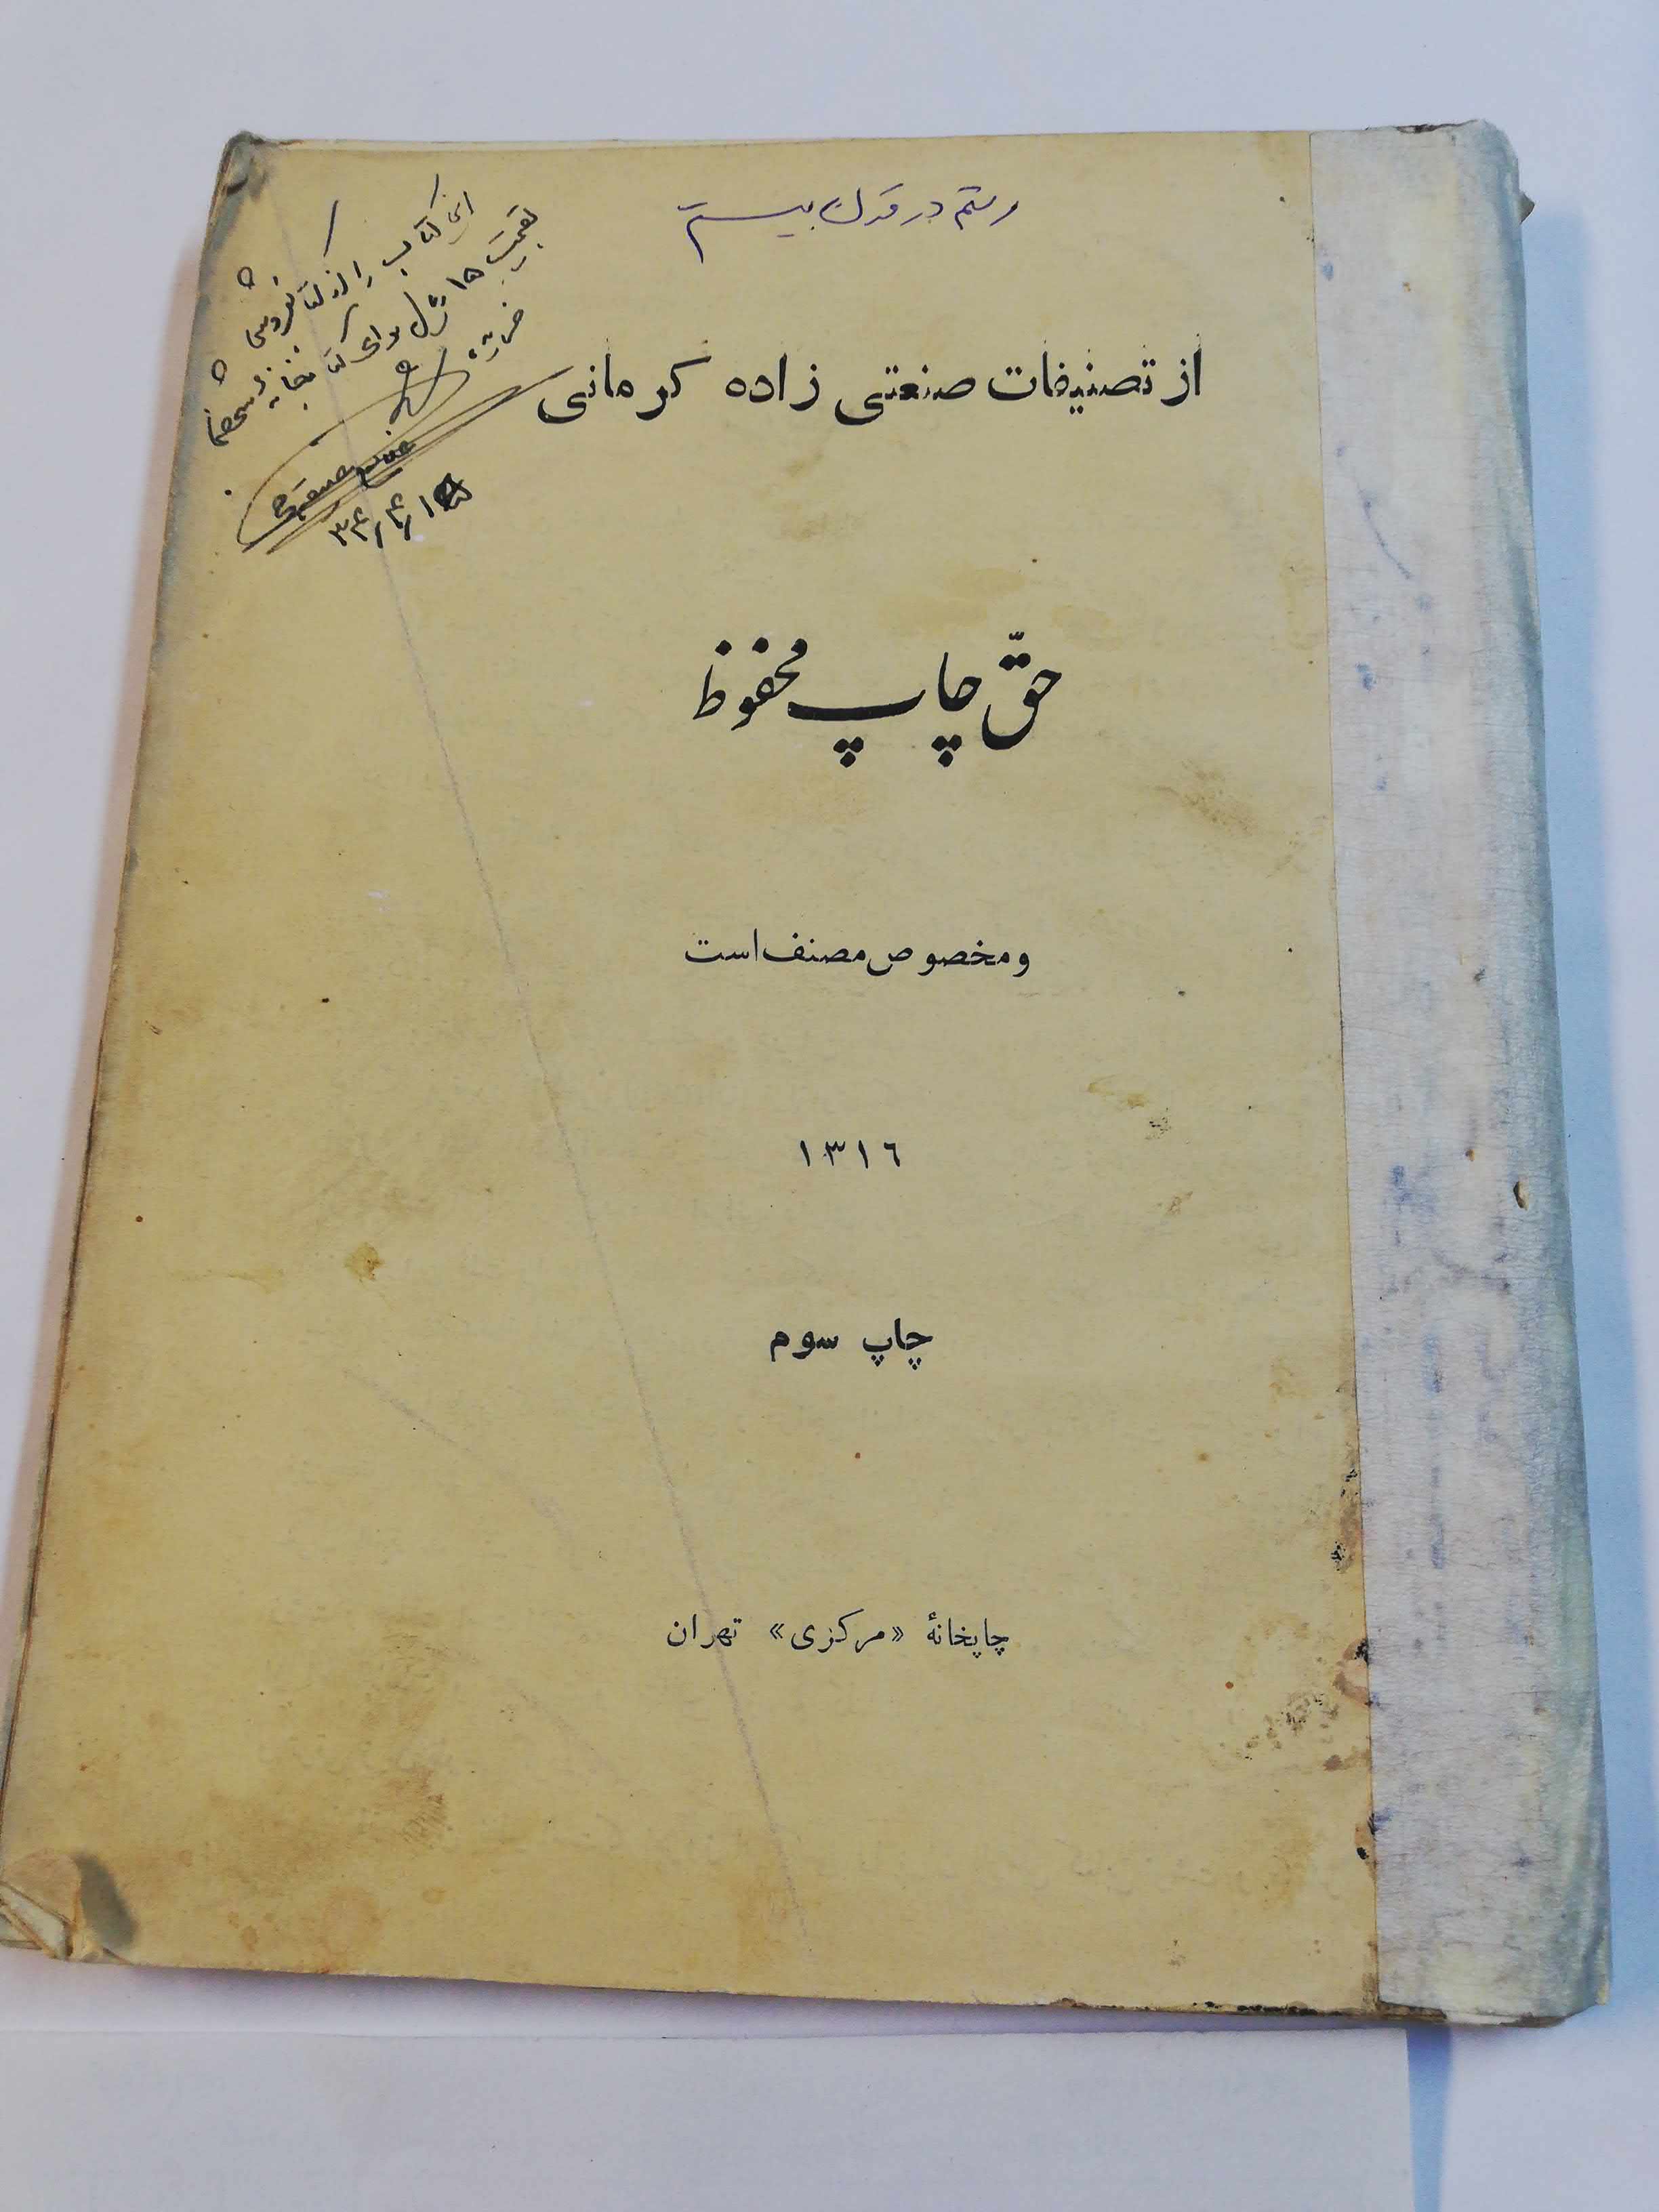 رستم در قرن بیستم
این کتاب را از کتابفروشی
بقیمت ۱۵ ریال برای کتابخانه شخصی
خریدم
۳۴/۴/۱۵
از تصنیفات صنعتی زاده کرمانی
حقّ چاپ محفوظ
و مخصوص مصنف است
۱۳۱۶
چاپ سوم
چاپخانهٔ «مرکزی» تهران